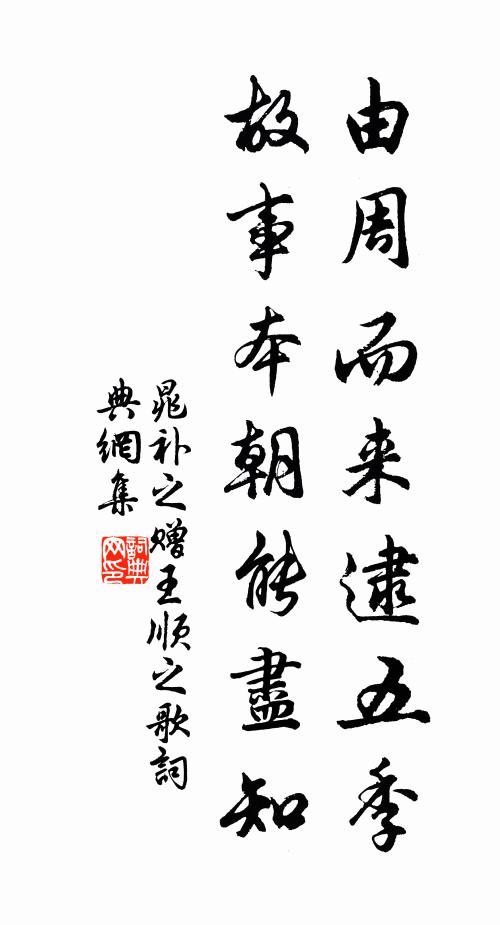 由周而来逮五季
故事本朝能盡知
晁补之赠王顺之歌詞
典網集
詞典网印